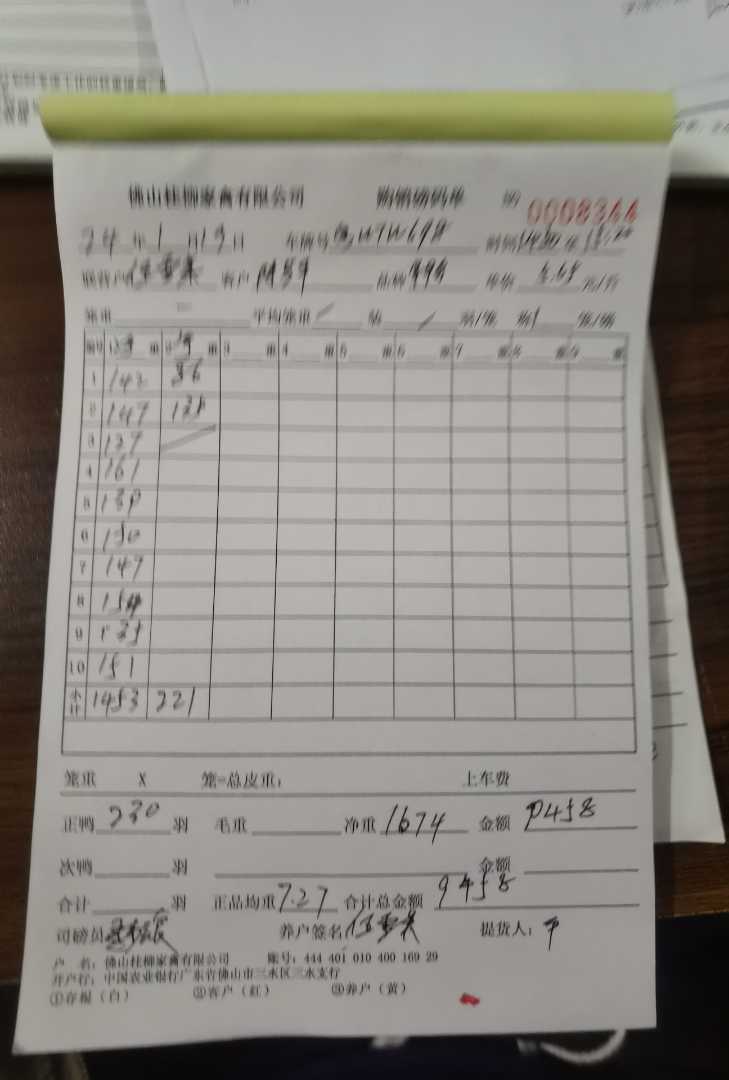 佛山桂柳家禽有限公司 购销磅码单 № 0008344
24年1月19日 车牌号 W698 时间
联营户 客户 品种 单价 5.65元/斤
笼重 平均笼重 / 装 / 羽/笼 笼/磅
1 2 3 重 4 重 5 重 6 重 7 重 8 重 9 重
1 142 86
2 147 135
3 137
4 161
5 138
6 150
7 147
8 154
9 135
10 151
小计 1453 221
笼重 X 笼=总皮重: 上车费
正鸭 230 羽 毛重 净重 1674 金额 9458
次鸭 羽 金额
合计 羽 正品均重 7.27 合计总金额 9458
司磅员 养户签名 提货人:
户 名: 佛山桂柳家禽有限公司 账号: 444 401 010 400 169 29
开户行: 中国农业银行广东省佛山市三水区三水支行
①存根(白) ②客户(红) ③养户(黄)